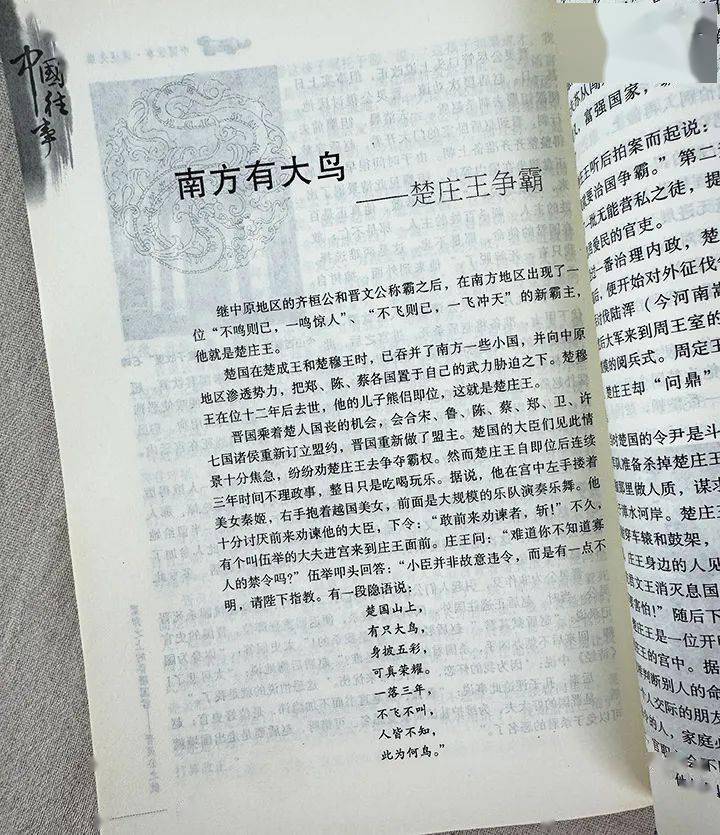 中國往事
南方有大鸟
——楚庄王争霸
继中原地区的齐桓公和晋文公称霸之后，在南方地区出现了一
位“不鸣则已，一鸣惊人”、“不飞则已，一飞冲天”的新霸主，
他就是楚庄王。
楚国在楚成王和楚穆王时，已吞并了南方一些小国，并向中原
地区渗透势力，把郑、陈、蔡各国置于自己的武力胁迫之下。楚穆
王在位十二年后去世，他的儿子熊侣即位，这就是楚庄王。
晋国乘着楚人国丧的机会，会合宋、鲁、陈、蔡、郑、卫、许
七国诸侯重新订立盟约，晋国重新做了盟主。楚国的大臣们见此情
景十分焦急，纷纷劝楚庄王去争夺霸权。然而楚庄王自即位后连续
三年时间不理政事，整日只是吃喝玩乐。据说，他在宫中左手搂着
美女秦姬，右手抱着越国美女，前面是大规模的乐队演奏乐舞。他
十分讨厌前来劝谏他的大臣，下令：“敢前来劝谏者，斩！”不久，
有个叫伍举的大夫进宫来到庄王面前。庄王问：“难道你不知道寡
人的禁令吗？”伍举叩头回答：“小臣并非故意违令，而是有一点不
明，请陛下指教。有一段隐语说：
楚国山上，
有只大鸟，
身披五彩，
可真荣耀。
一落三年，
不飞不叫，
人皆不知，
此为何鸟。”
苏从闯
，富强国家，
王听后拍案而起说：
要治国争霸。”第二
批无能营私之徒，提
恩爱民的官吏。
过一番治理内政，楚
后，便开始对外征伐
时伐陆浑（今河南嵩
后大军来到周王室的
模的阅兵式。周定王
楚庄王却“问鼎”
时楚国的令尹是斗
队准备杀掉楚庄王
那里做人质，谋求
于漳水河岸。楚庄
穿车辕和鼓架，
庄王身边的人见
文王消灭息国
害怕！”随后下
庄王是一位开明
王的宫中。据
判断别人的命
人交际的朋友
的人，家庭必